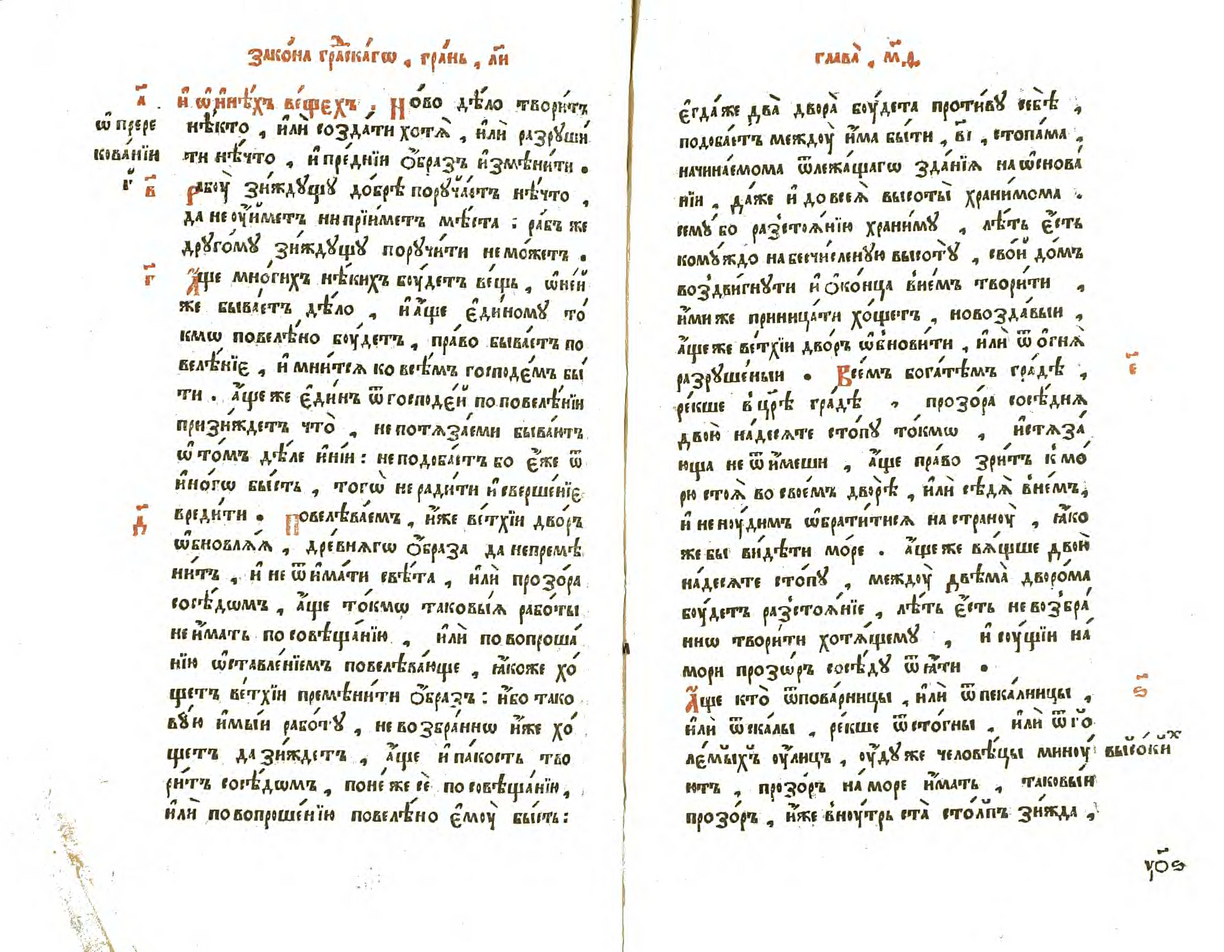 Зако́на гра́дскагѡ , гра́нь , ли҃
а҃
ѡ҆ прере
кова́нїи
г҃
в҃
г҃
д҃
и҆ ѡ҆и҆нѣ́хъ ве́щехъ , Но́во дѣ́ло твори́тъ
нѣ́кто , и҆лѝ созда́ти хотѧ̀ , и҆лѝ разрꙋши́
ти нѣ́что , и҆пре́днїи ѻ҆́бразъ и҆змѣни́ти .
Рабꙋ̀ зи́ждꙋщꙋ до́брѣ порꙋча́етъ нѣ́что ,
да не ᲂу҆и́метъ ни прїи́метъ мѣ́ста : ра́бъ же
дрꙋго́мꙋ зи́ждꙋщꙋ порꙋчи́ти не мо́жетъ .
А҆́ще мно́гихъ нѣ́кихъ бꙋ́детъ ве́щь , ѡ҆не́й
же быва́етъ дѣ́ло , и҆а҆́ще є҆ди́номꙋ то́
кмѡ повелѣ́но бꙋ́детъ , пра́во быва́етъ по
велѣ́нїе , и҆ мни́тсѧ ко всѣ́мъ господе́мъ бы́
ти . а҆́ще же є҆ди́нъ ѿ господе́й по повелѣ́нїи
призи́ждетъ что̀ , не потѧза́еми быва́ютъ
ѡ҆ то́мъ дѣ́ле и҆нїи : не подоба́етъ бо є҆́же ѿ
и҆но́гѡ бы́сть , тогѡ̀ не ради́ти и҆ сверше́нїе
вреди́ти . Повелѣва́емъ , и҆́же ве́тхїи дво́ръ
ѡ҆бновлѧ́ѧ , дре́внѧгѡ ѻ҆́браза да не премѣ
ни́тъ , и҆ не ѿи҆ма́ти свѣ́та , и҆лѝ прозо́ра
сосѣ́дѡмъ , а҆́ще то́кмѡ таковы́ѧ рабо́ты
не и҆́мать по совѣща́нїю , и҆лѝ по вопроша́
нїю ѡ҆ставле́нїемъ повелѣва́юще , ꙗ҆́коже хо́
щетъ ве́тхїи премѣни́ти ѻ҆́бразъ : и҆́бо тако
вꙋ́ю и҆мы́й рабо́тꙋ , не возбра́ннѡ и҆́же хо́
щетъ да зи́ждетъ , а҆́ще и҆ па́кость тво
ри́тъ сосѣ́дѡмъ , поне́же сѐ по совѣща́нїю ,
и҆лѝ по вопроше́нїю повелѣ́но є҆мꙋ̀ бы́сть :
глава̀ , м҃ѳ
є҆гда́же два̀ двора̀ бꙋ́дета проти́вꙋ себѣ̀ ,
подоба́етъ междꙋ̀ и҆́ма бы́ти , в҃і , стопа́ма ,
начина́емома ѿлежа́щагѡ зда́нїѧ на ѡ҆снова́
нїи , да́же и҆ до всеѧ̀ высоты̀ храни́мома .
семꙋ́ бо разстоѧ́нїю храни́мꙋ , лѣ́ть є҆́сть
комꙋ́ждо на безчи́сленꙋю высотꙋ̀ , сво́й до́мъ
воздви́гнꙋти и҆ ѻ҆ко́нца в̾не́мъ твори́ти ,
и҆́миже приница́ти хо́щетъ , новозда́выи ,
а҆́щеже ве́тхїи дво́ръ ѡ҆бнови́ти , и҆лѝ ѿ ѻ҆гнѧ̀
разрꙋше́ныи . Все́мъ бога́тѣмъ гра́дѣ ,
ре́кше в̾ цр҃ѣ гра́дѣ , прозо́ра сосѣ́днѧ
двою̀ на́десѧте сто́пꙋ то́кмѡ , и҆стѧза́
юща не ѿи́меши , а҆́ще пра́во зри́тъ к̾ мо́
рю стоѧ̀ во свое́мъ дворѣ̀ , и҆лѝ сѣдѧ̀ в̾не́мъ ,
и҆ не нꙋ́димъ ѡ҆брати́тисѧ на странꙋ̀ , ꙗ҆́ко
же бы ви́дѣти мо́ре . а҆́ще же вѧ́щше двою̀
на́десѧте сто́пꙋ , междꙋ̀ двѣма̀ дворо́ма
бꙋ́детъ разстоѧ́нїе , лѣ́ть є҆́сть не возбра́
ннѡ твори́ти хотѧ́щемꙋ , и҆ сꙋ́щїи на́
мори прозѡ́ръ сосѣ́дꙋ ѿѧ́ти .
А҆́ще кто̀ ѿ пова́рницы , и҆лѝ ѿ пека́лницы ,
и҆лѝ ѿ ска́лы , ре́кше ѿ сто́гны , и҆лѝ ѿ го
ле́мыхъ ᲂу҆́лицъ , ᲂу҆́дꙋже человѣ́цы минꙋ́
ютъ , прозо́ръ на́море и҆́мать , таковы́и
прозо́ръ , и҆́же внꙋ́трь ста̀ сто́пъ зи́жда ,
є҃
ѕ҃
высо́кихъ
уѻ҃ѕ